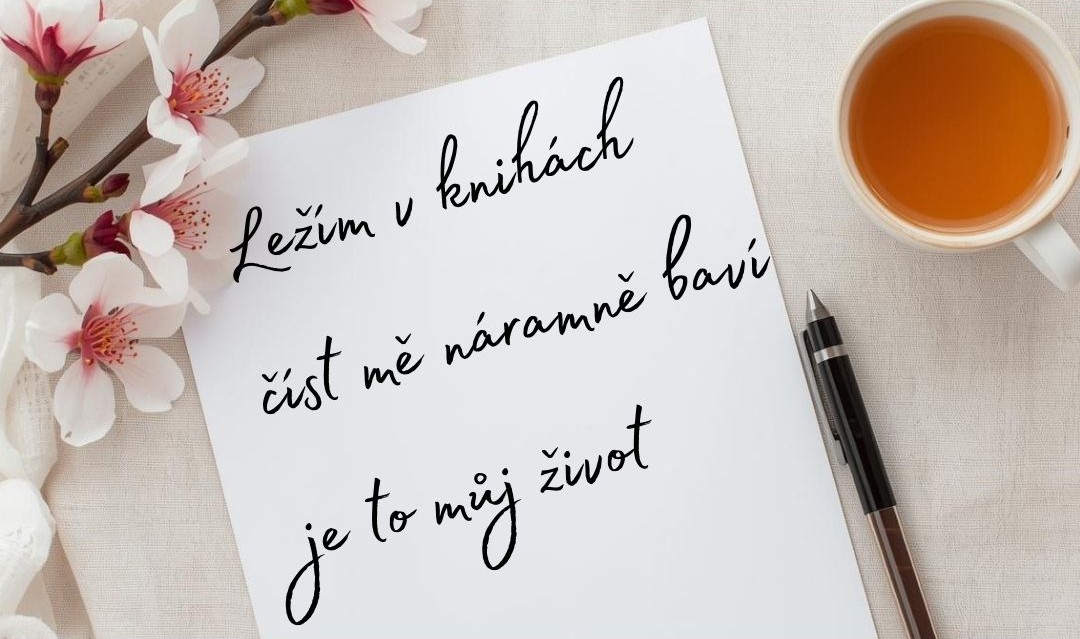 Ležím v knihách
číst mě náramně baví
je to můj život